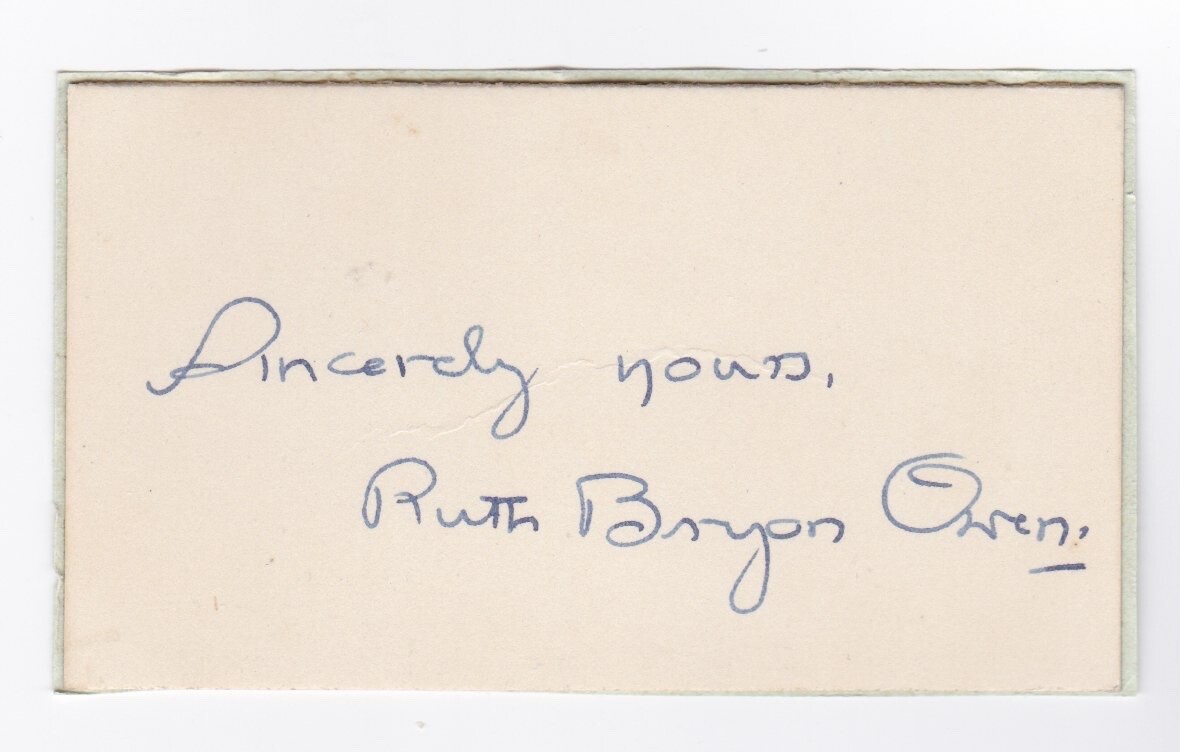 Sincerely yours,
Ruth Bryan Owen.